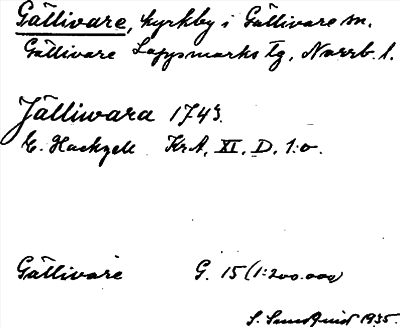 Gällivare, kyrkby i Gällivare sn.
Gällivare Lappmarks tg, Norrb. l.
Jälliwara 1743.
E. Hackzell KrA, XI. D. 1:o.
Gällivare G. 15 (1:200.000)
S. Sundqvist 1935.